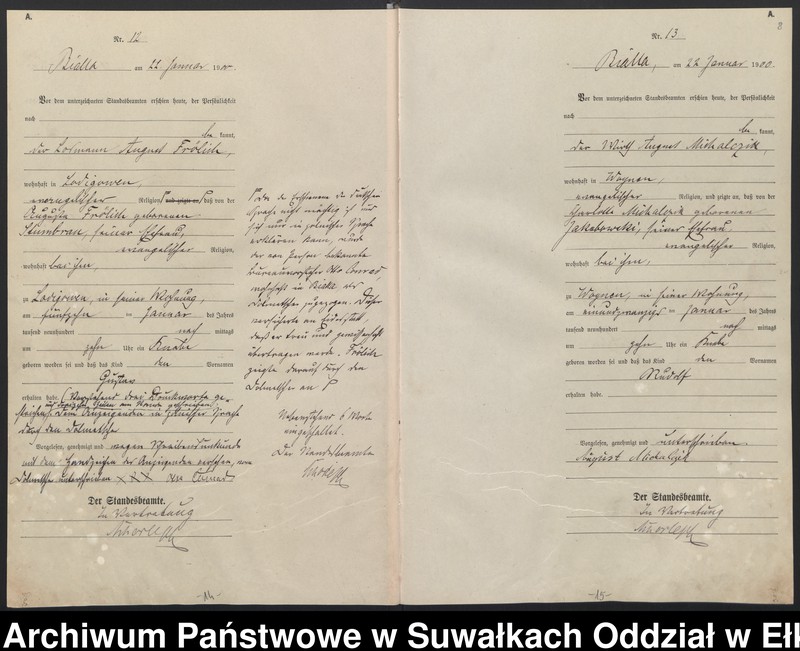 A.
Nr. 12
Bialla am 22 Januar 1900.
Vor dem unterzeichneten Standesbeamten erschien heute, der Persönlichkeit
nach
be kannt,
der Losmann August Frölich,
wohnhaft in Lodigowen,
evangelischer Religion, und zeigte an, daß von der
Auguste Frölich geborenen
seiner Ehefrau,
evangelischer Religion,
wohnhaft bei ihm,
zu Lodigowen, in seiner Wohnung,
am fünfzehn ten Januar des Jahres
tausend neunhundert nach mittags
um zehn Uhr ein Knabe
geboren worden sei und daß das Kind den Vornamen
Gustav
erhalten habe. (Vorstehend drei Druckworte ge-
strichen) dem Anzeigenden in polnischer Sprache
durch den Dolmetscher
Vorgelesen, genehmigt und wegen Schreibensunkunde
mit dem Handzeichen des Anzeigenden versehen, vom
Dolmetscher unterschrieben XXX Otto Conrad
Der Standesbeamte.
In Vertretung
-14-
Da der Erschienene der deutschen
Sprache nicht mächtig ist und
sich nur in polnischer Sprache
erklären kann, wurde
der von Person bekannte
Bureauvorsteher Otto Conrad
wohnhaft in Bialla als
Dolmetscher zugezogen. Dieser
versicherte an Eidesstatt,
daß er treu und gewissenhaft
übertragen werde. Frölich
zeigte darauf durch den
Dolmetscher an
6 Worte
eingeschaltet.
Der Standesbeamte
A.
8
Nr. 13
Bialla, am 22 Januar 1900.
Vor dem unterzeichneten Standesbeamten erschien heute, der Persönlichkeit
nach
be kannt,
der Wirth August Michalczik,
wohnhaft in Woynen,
evangelischer Religion, und zeigte an, daß von der
Charlotte Michalczik geborenen
Jakobowski, seiner Ehefrau
evangelischer Religion,
wohnhaft bei ihm,
zu Woynen, in seiner Wohnung,
am einundzwanzigs ten Januar des Jahres
tausend neunhundert nach mittags
um zehn Uhr ein Knabe
geboren worden sei und daß das Kind den Vornamen
Rudolf
erhalten habe.
Vorgelesen, genehmigt und unterschrieben
August Michalzik
Der Standesbeamte.
In Vertretung
-15-
Archiwum Państwowe w Suwałkach Oddział w Ełk